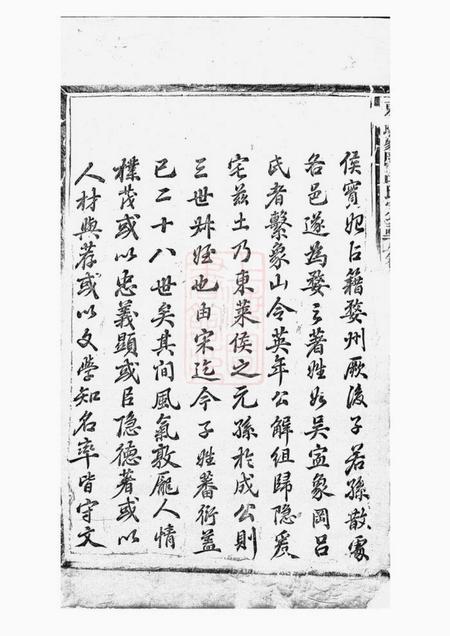 侯實始占籍婺州厥後子若孫散處
各邑遂為婺之著姓如吳宜象岡呂
氏者繫象山令英年公解組歸隱爰
宅茲土乃東萊侯之元孫於成公則
三世姪也由宋迄今子姓蕃衍蓋
已二十八世矣其間風氣敦龐人情
樸茂或以忠義顯或臣隐德著或以
人材與荐或以文學知名率皆守文